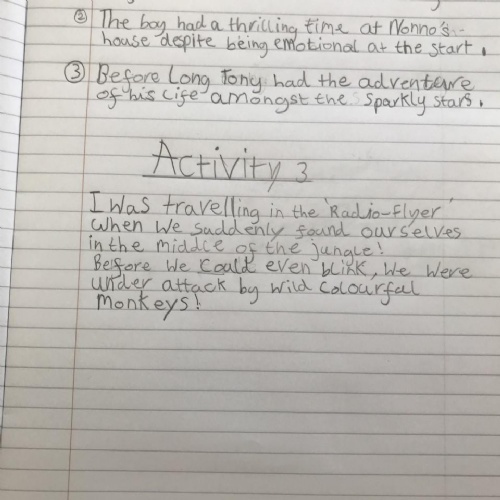 ② The boy had a thrilling time at Nonno's
house despite being emotional at the start.
③ Before Long Tony had the adventure
of his life amongst the sparkly stars.
Activity 3
I was travelling in the 'Radio-Flyer'
when we suddenly found ourselves
in the middle of the jungle!
Before we could even blink, we were
under attack by wild colourful
monkeys!